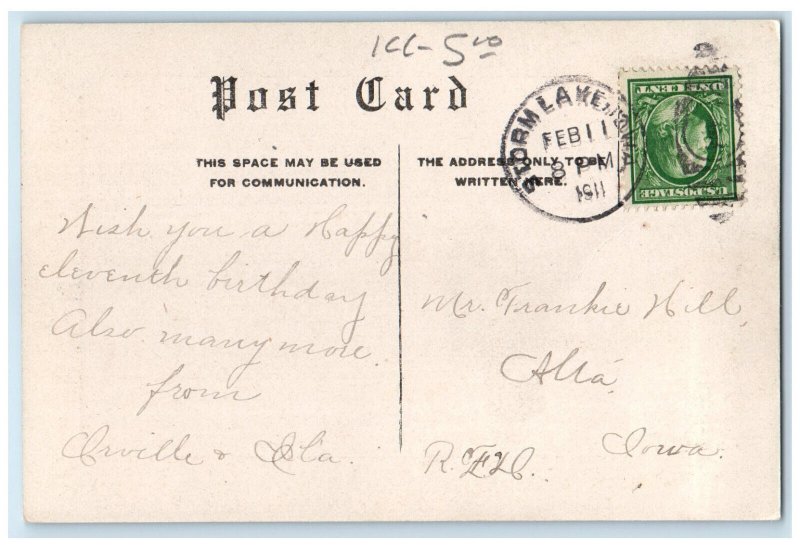 ICC- 5.00
Post Card
STORM LAKE, IOWA
FEB 11
8 PM
1911
ONE CENT
U.S. POSTAGE
THIS SPACE MAY BE USED
FOR COMMUNICATION.
THE ADDRESS ONLY TO BE
WRITTEN HERE.
Wish you a Happy
eleventh birthday
Also many more.
from
Orville & Ila.
Mr. Frankie Hill,
Alta,
Iowa.
R.F.D.